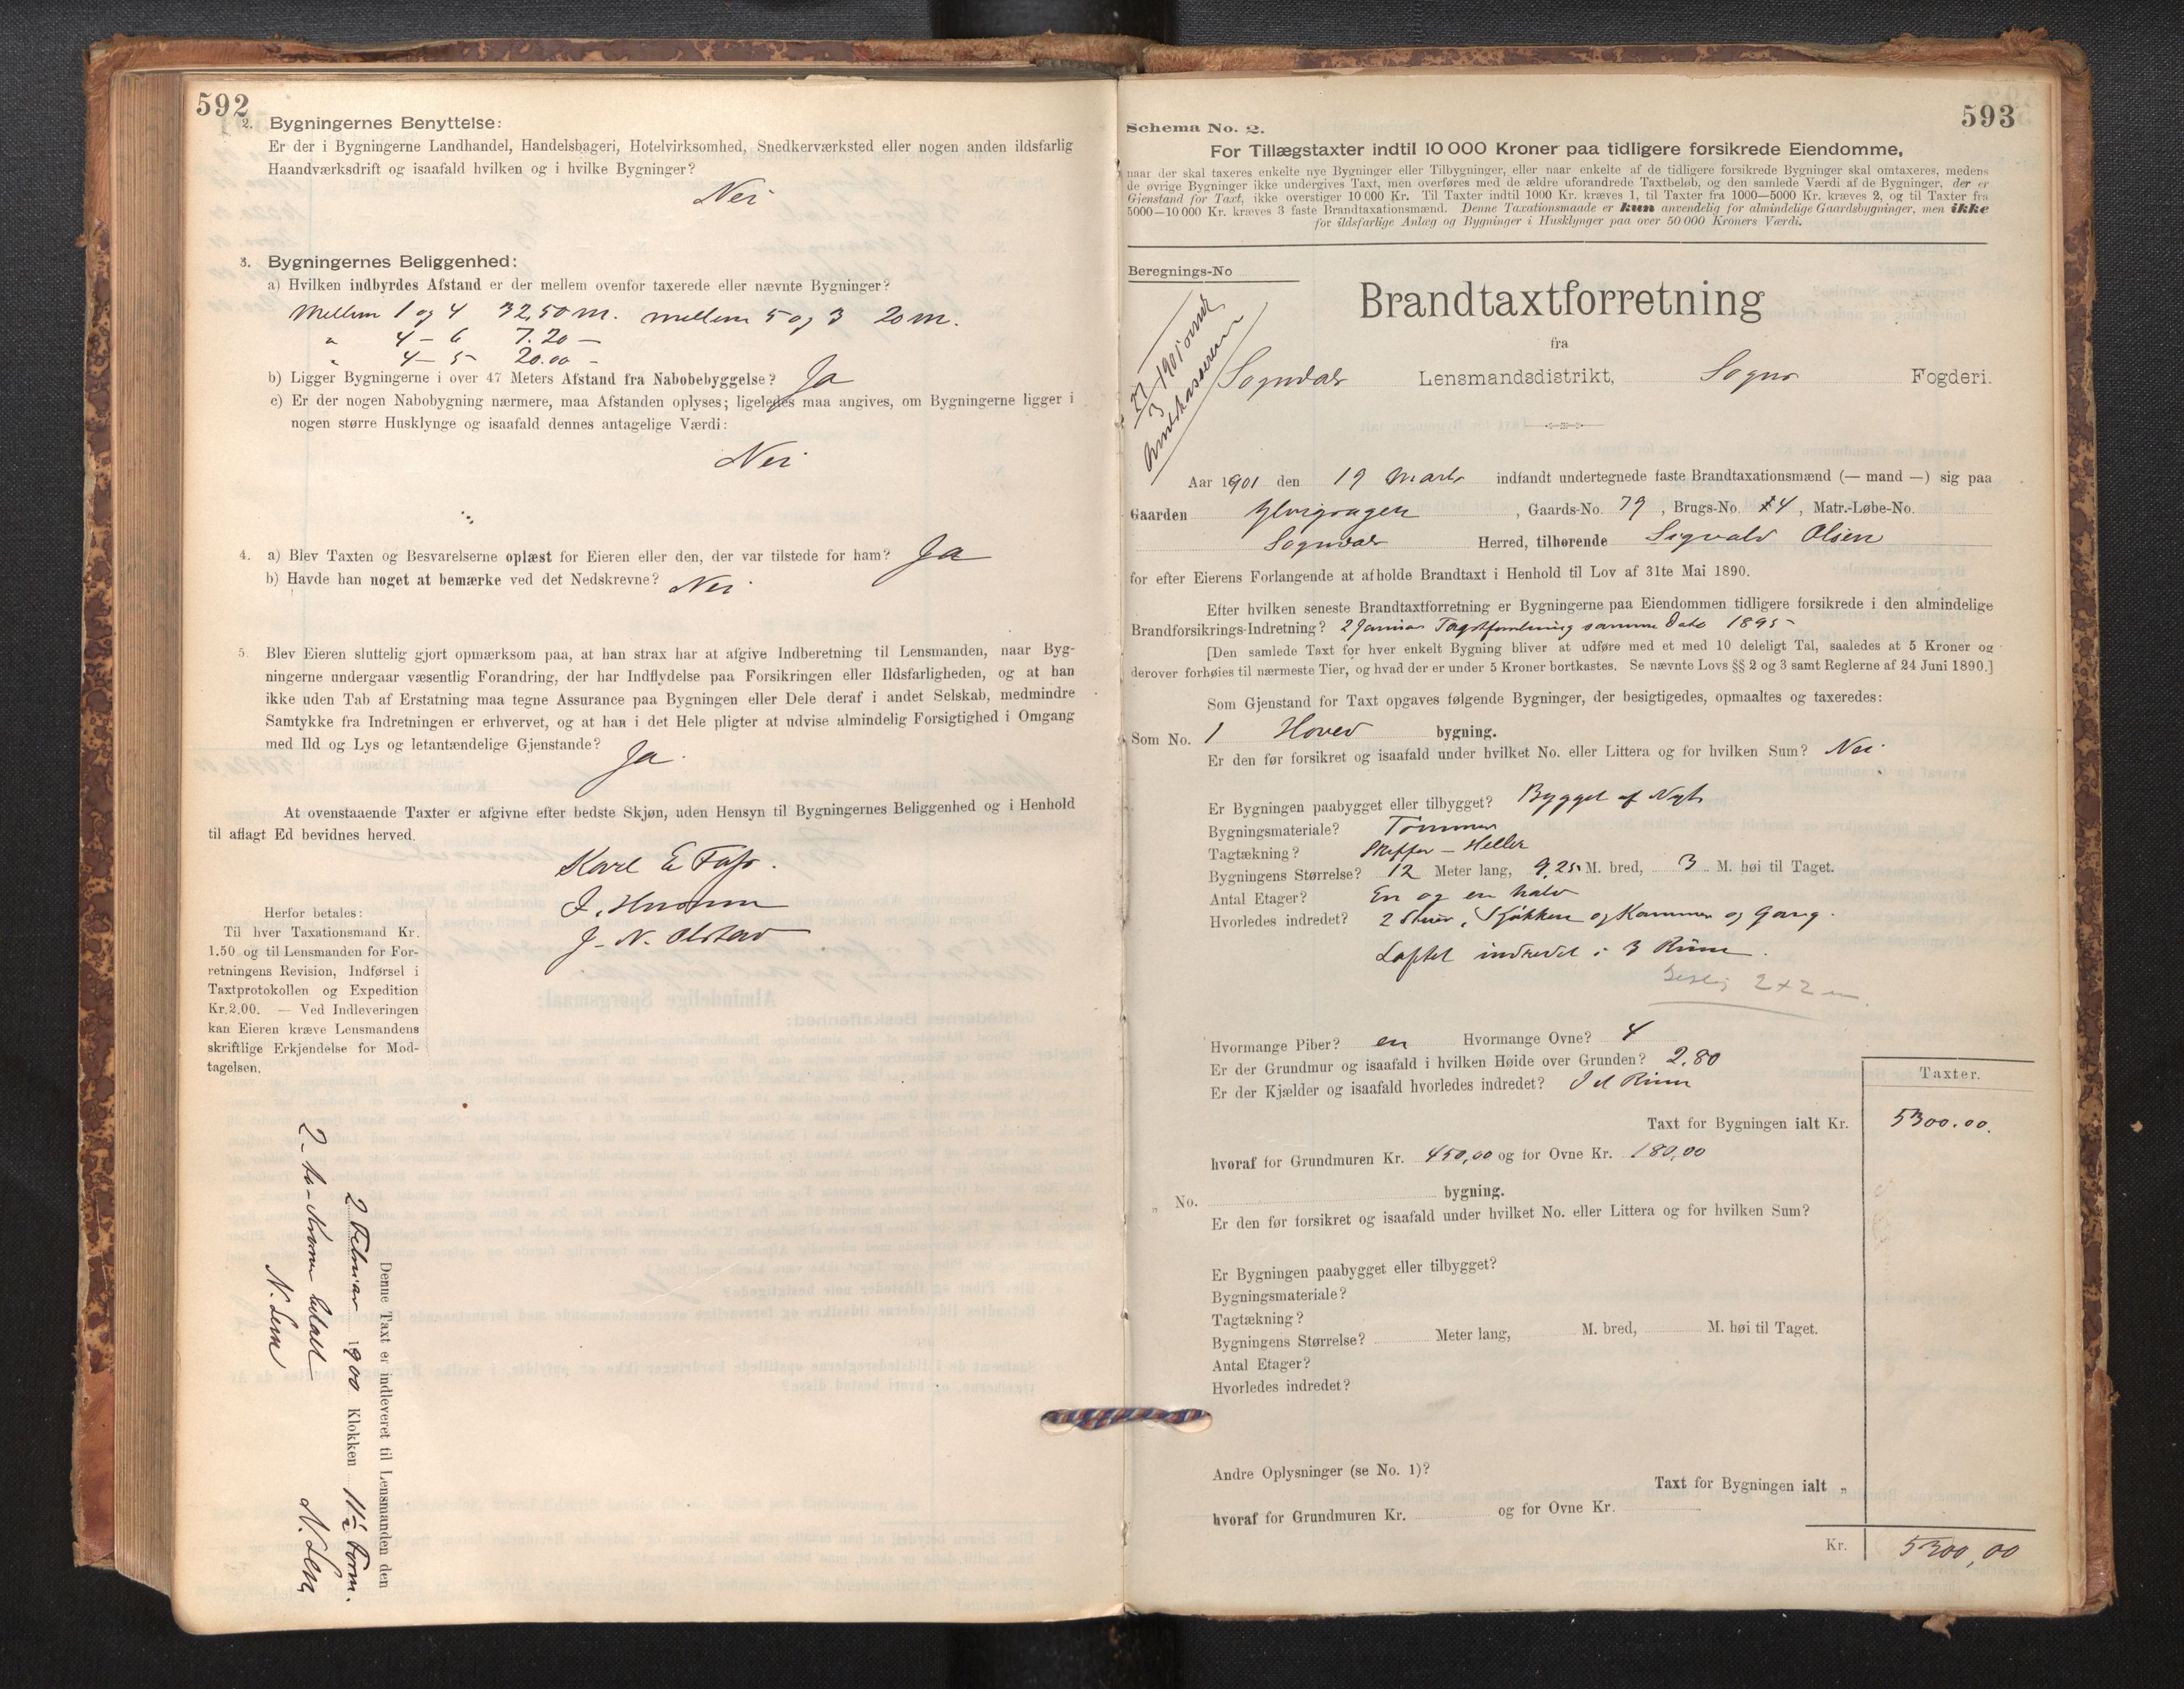 592
2. Bygningernes Benyttelse:
Er der i Bygningerne Landhandel, Handelsbageri, Hotelvirksomhed, Snedkerværksted eller nogen anden ildsfarlig
Haandværksdrift og isaafald hvilken og i hvilke Bygninger?
Nei
3. Bygningernes Beliggenhed:
a) Hvilken indbyrdes Afstand er der mellem ovenfor taxerede eller nævnte Bygninger?
Mellem 1 og 4 32,50 m. mellem 5 og 3 20 m.
" 4 – 6 7.20 –
" 4 – 5 20.00 –
b) Ligger Bygningerne i over 47 Meters Afstand fra Nabobebyggelse? Ja
c) Er der nogen Nabobygning nærmere, maa Afstanden oplyses; ligeledes maa angives, om Bygningerne ligger i
nogen større Husklynge og isaafald dennes antagelige Værdi:
Nei
4. a) Blev Taxten og Besvarelserne oplæst for Eieren eller den, der var tilstede for ham? Ja
b) Havde han noget at bemærke ved det Nedskrevne? Nei
5. Blev Eieren sluttelig gjort opmærksom paa, at han strax har at afgive Indberetning til Lensmanden, naar Byg-
ningerne undergaar væsentlig Forandring, der har Indflydelse paa Forsikringen eller Ildsfarligheden, og at han
ikke uden Tab af Erstatning maa tegne Assurance paa Bygningen eller Dele deraf i andet Selskab, medmindre
Samtykke fra Indretningen er erhvervet, og at han i det Hele pligter at udvise almindelig Forsigtighed i Omgang
med Ild og Lys og letantændelige Gjenstande? Ja.
At ovenstaaende Taxter er afgivne efter bedste Skjøn, uden Hensyn til Bygningernes Beliggenhed og i Henhold
til aflagt Ed bevidnes herved.
Karl E
J.
J. N. Olstad
Herfor betales:
Til hver Taxationsmand Kr.
1.50 og til Lensmanden for For-
retningens Revision, Indførsel i
Taxtprotokollen og Expedition
Kr. 2.00. — Ved Indleveringen
kan Eieren kræve Lensmandens
skriftlige Erkjendelse for Mod-
tagelsen.
Denne Taxt er indleveret til Lensmanden den
2 Februar 1900 Klokken 11½ Form.
N. Lem
2 – to – Kroner betalt
N. Lem
593
Schema No. 2.
For Tillægstaxter indtil 10 000 Kroner paa tidligere forsikrede Eiendomme,
naar der skal taxeres enkelte nye Bygninger eller Tilbygninger, eller naar enkelte af de tidligere forsikrede Bygninger skal omtaxeres, medens
de øvrige Bygninger ikke undergives Taxt, men overføres med de ældre uforandrede Taxtbeløb, og den samlede Værdi af de Bygninger, der er
Gjenstand for Taxt, ikke overstiger 10 000 Kr. Til Taxter indtil 1000 Kr. kræves 1, til Taxter fra 1000—5000 Kr. kræves 2, og til Taxter fra
5000—10 000 Kr. kræves 3 faste Brandtaxationsmænd. Denne Taxationsmaade er kun anvendelig for almindelige Gaardsbygninger, men ikke
for ildsfarlige Anlæg og Bygninger i Husklynger paa over 50 000 Kroners Værdi.
Beregnings-No
27/3 1901
Amtskasseren
Brandtaxtforretning
fra
Sogndal Lensmandsdistrikt, Sogns Fogderi.
Aar 1901 den 19 Marts indfandt undertegnede faste Brandtaxationsmænd (— mand —) sig paa
Gaarden , Gaards-No. 79, Brugs-No. 4, Matr.-Løbe-No.
Sogndal Herred, tilhørende Sigvald Olsen
for efter Eierens Forlangende at afholde Brandtaxt i Henhold til Lov af 31te Mai 1890.
Efter hvilken seneste Brandtaxtforretning er Bygningerne paa Eiendommen tidligere forsikrede i den almindelige
Brandforsikrings-Indretning? 2 Januar Taxtforretning samme Dato 1895
[Den samlede Taxt for hver enkelt Bygning bliver at udføre med et med 10 deleligt Tal, saaledes at 5 Kroner og
derover forhøies til nærmeste Tier, og hvad der er under 5 Kroner bortkastes. Se nævnte Lovs §§ 2 og 3 samt Reglerne af 24 Juni 1890.]
Som Gjenstand for Taxt opgaves følgende Bygninger, der besigtigedes, opmaaltes og taxeredes:
Som No. 1 Hoved bygning.
Er den før forsikret og isaafald under hvilket No. eller Littera og for hvilken Sum? Nei
Er Bygningen paabygget eller tilbygget? Bygget af Nyt
Bygningsmateriale? Tømmer
Tagtækning? Skiffer – Heller
Bygningens Størrelse? 12 Meter lang, 9,25 M. bred, 3 M. høi til Taget.
Antal Etager? En og en halv
Hvorledes indredet? 2 Stuer, Kjøkken og Kammer og Gang.
Loftet indredet i 3 Rum.
2 x 2 m.
Hvormange Piber? en Hvormange Ovne? 4
Er der Grundmur og isaafald i hvilken Høide over Grunden? 2.80
Er der Kjælder og isaafald hvorledes indredet? I et Rum
Taxter.
Taxt for Bygningen ialt Kr. 5300.00.
hvoraf for Grundmuren Kr. 450,00 og for Ovne Kr. 180,00
„ No. bygning.
Er den før forsikret og isaafald under hvilket No. eller Littera og for hvilken Sum?
Er Bygningen paabygget eller tilbygget?
Bygningsmateriale?
Tagtækning?
Bygningens Størrelse? Meter lang, M. bred, M. høi til Taget.
Antal Etager?
Hvorledes indredet?
Andre Oplysninger (se No. 1)?
Taxt for Bygningen ialt „
hvoraf for Grundmuren Kr. og for Ovne Kr.
Kr. 5300,00